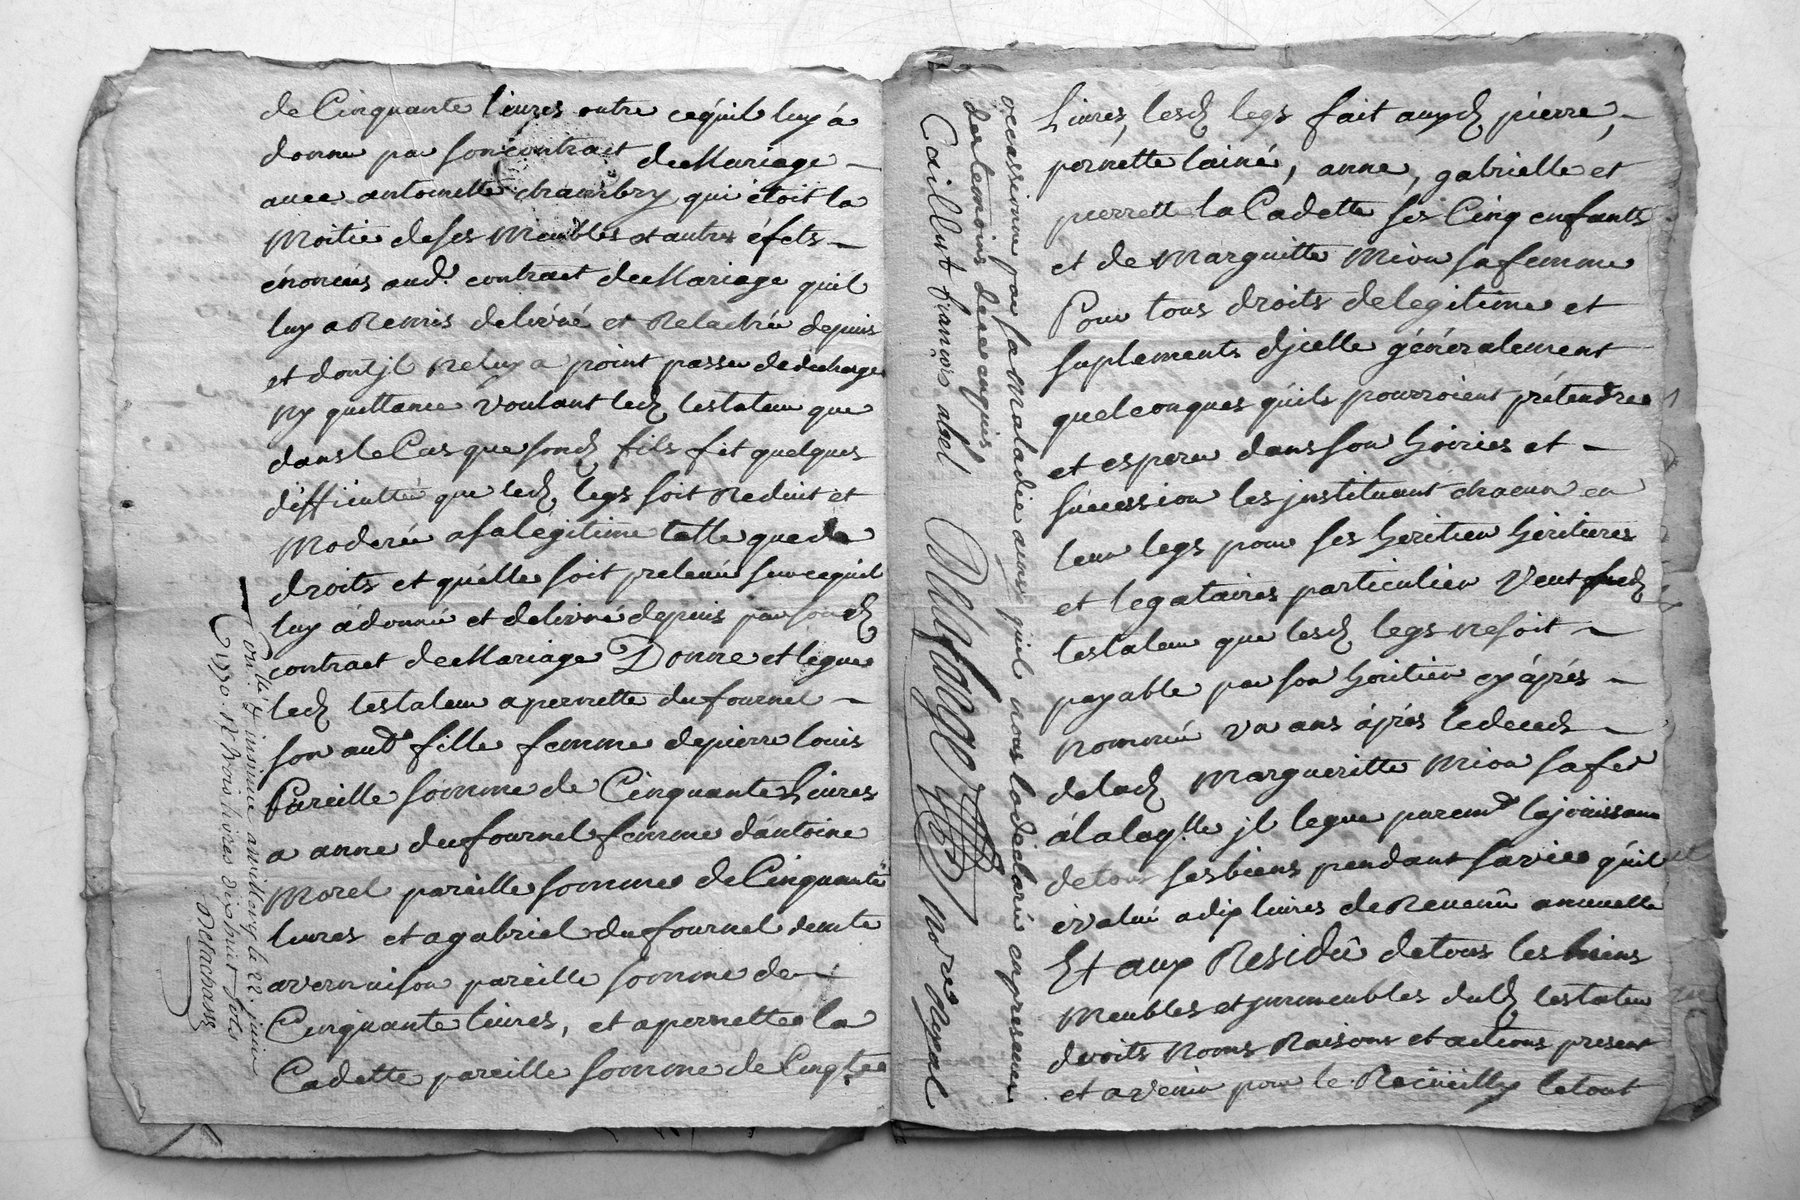 de Cinquante livres outre cequil luy à
donné par son contract de Mariage –
avec antoinette chambry qui étoit la
Moitié de ses Meubles et autres éfets –
énoncés aud.t contract de Mariage quil
luy a Remis delivré et Relachée depuis
et dont jl Ne luy a point passée de decharge
Ny quittance Voulant led testateur que
dans le Cas que sond fils fit quelques
difficultée que led legs soit Reduit et
Moderée a sa legitime telle que de
droits et quelle soit prelevée sur cequil
luy à donnée et delivré depuis par sond
contract de Mariage Donne et legue
led testateur a pernette dufournel –
son aud fille femme de pierre louis
Pareille somme de Cinquante Livres
a anne dufournel femme d'antoine
Morel pareille somme de Cinquante
livres et a gabriel dufournel
pareille somme de –
Cinquante livres, et a pernette la
Cadette pareille somme de Cinqte
Con.lé & insinué a la 22. juin
1770. R
Delachaux
occassionné par sa Maladie ainsi quil nous la déclaré en presence
des temoins de ce enquis
Caillut françois abel
no.re Royal
Livres, lesd legs fait auxd pierre, –
pernette lainé, anne, gabrielle et
pierrette la Cadette ses Cinq enfants
et de Marguitte Mion sa femme
Pour tous droits de legitime et
suplements djcelle généralement
quelconques quils pourroient prétendre
et esperer dans son hoiries et –
succession les jnstituant chacun en
leur legs pour ses heritier héritieres
et legataires particulier Veut led
testateur que lesd legs ne soit –
payable par son héritier cy àprés –
Nommé un ans àprés le deceds –
de lad Margueritte Mion sa fe
à la laq.lle jl legue parem.t la jouissance
de tous ses biens pendant sa vie quil
évalué a dix livres de Revenû annuelle
Et aux Residû de tous les biens
Meubles et jmmeubles dud testateur
droits Noms Raisons et actions present
et avenir pour le Recüeilly le tout